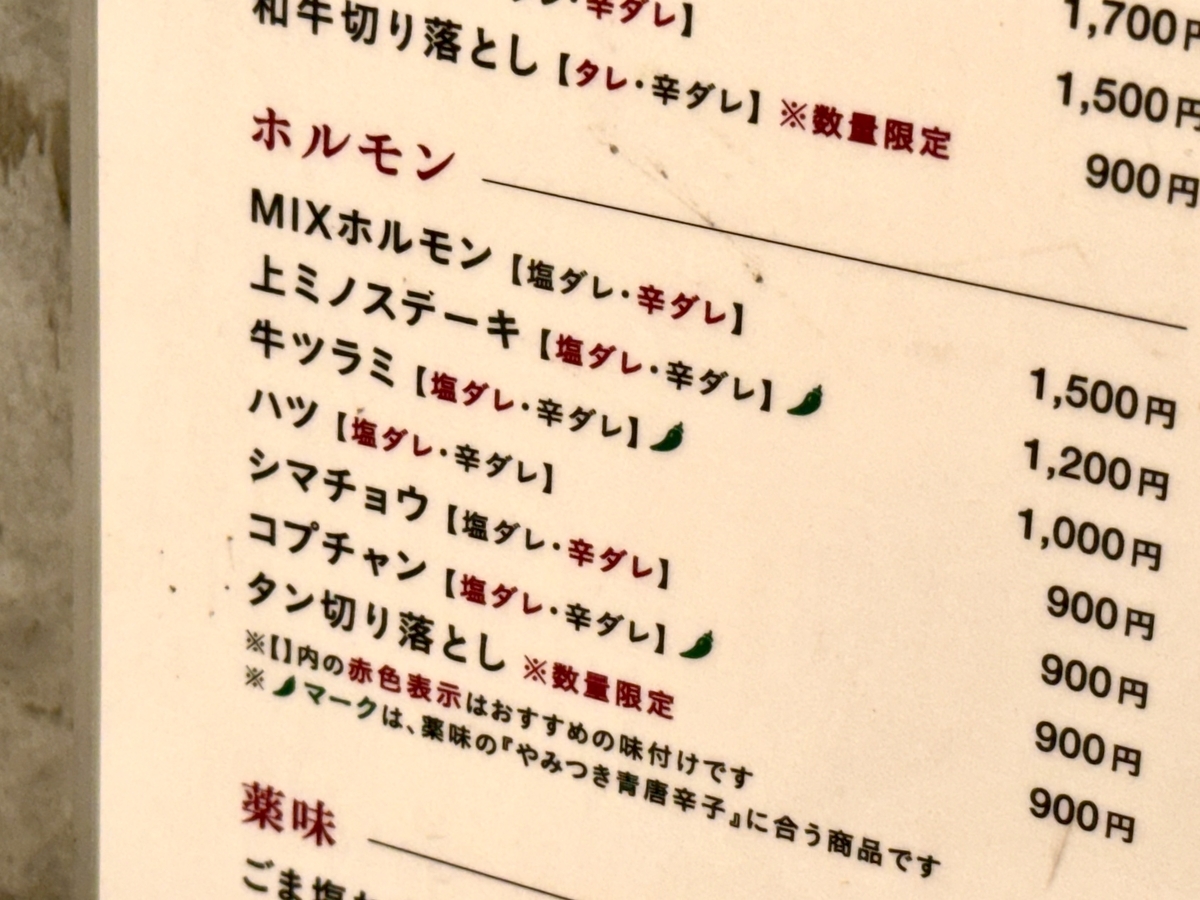 辛ダレ】 1,700円
和牛切り落とし【タレ・辛ダレ】※数量限定 1,500円
900円
ホルモン
MIXホルモン【塩ダレ・辛ダレ】 1,500円
上ミノステーキ【塩ダレ・辛ダレ】 1,200円
牛ツラミ【塩ダレ・辛ダレ】 1,000円
ハツ【塩ダレ・辛ダレ】 900円
シマチョウ【塩ダレ・辛ダレ】 900円
コプチャン【塩ダレ・辛ダレ】 900円
タン切り落とし ※数量限定 900円
※【】内の赤色表示はおすすめの味付けです
※マークは、薬味の『やみつき青唐辛子』に合う商品です
薬味
ごま塩